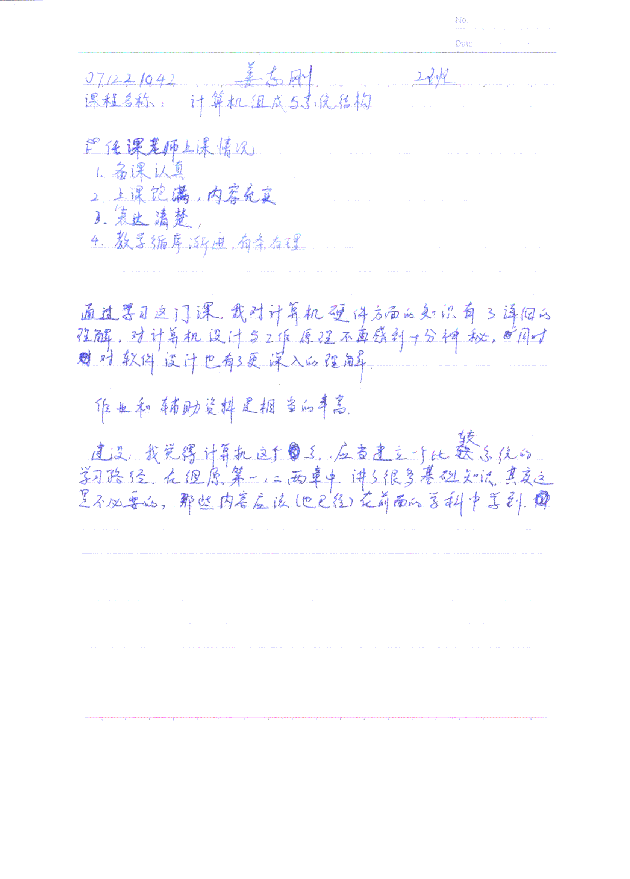 No.
Date
071221042 姜志刚 2班
课程名称： 计算机组成与系统结构
任课老师上课情况
1. 备课认真
2. 上课饱满，内容充实
3. 表达清楚，
4. 教学循序渐进，有条有理
通过学习这门课，我对计算机硬件方面的知识有了详细的
理解，对计算机设计与工作原理不再感到十分神秘，同时
对软件设计也有了更深入的理解.
作业和辅助资料是相当的丰富.
建议：我觉得计算机这个系，应当建立一个比较系统的
学习路径，在组原第一、二两章中，讲了很多基础知识，其实这
是不必要的，那些内容应该(也已经)在前面的学科中学到.